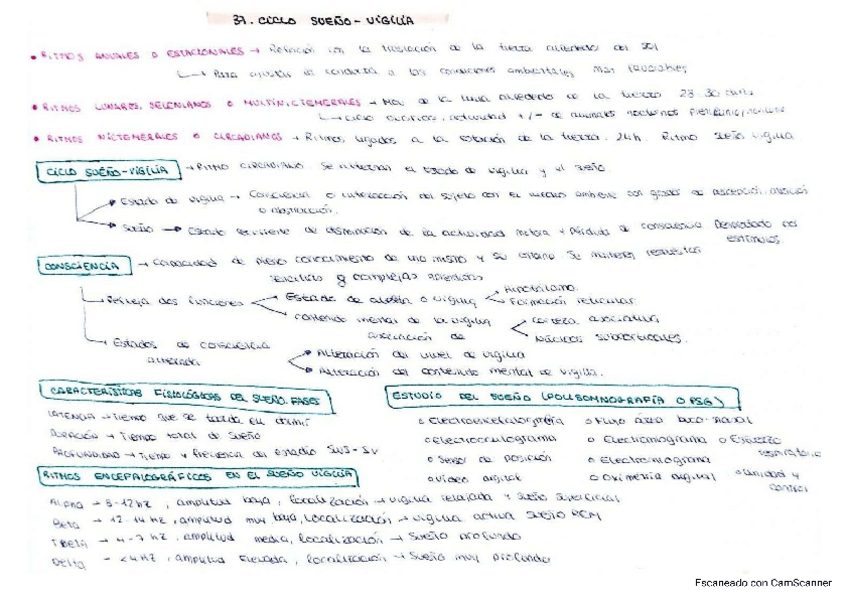 37. CICLO SUEÑO-VIGILIA
• RITMOS ANUALES O ESTACIONALES → Relación con la traslación de la tierra alrededor del sol
↳ Para ajustar la conducta a las condiciones ambientales más favorables
• RITMOS LUNARES, SELENIANOS O MULTINICTEMERALES → Mov de la luna alrededor de la tierra 28-30 días
↳ ciclo, actividad +/- de animales nocturnos
• RITMOS NICTEMERALES O CIRCADIANOS → Ritmos ligados a la rotación de la tierra. 24h. Ritmo sueño vigilia.
CICLO SUEÑO-VIGILIA → RITMO CIRCADIANO. Se alternan el estado de vigilia y el sueño.
Estado de vigilia → Consciencia e interacción del sujeto con el medio ambiente con grados de percepción, atención
o abstracción.
Sueño → Estado recurrente de disminución de la actividad motora y pérdida de consciencia. Despertado por
estímulos.
CONSCIENCIA → Capacidad de pleno conocimiento de uno mismo y su entorno. Se muestran respuestas
sencillas y complejas aprendidas
Refleja dos funciones
Estado de alerta o vigilia
Hipotálamo.
Formación reticular
contenido mental de la vigilia
corteza asociativa
Núcleos subcorticales.
Estados de consciencia
alterada
Alteración del nivel de vigilia
Alteración del contenido mental de vigilia.
CARACTERÍSTICAS FISIOLÓGICAS DEL SUEÑO. FASES
LATENCIA → Tiempo que se tarda en dormir
DURACIÓN → Tiempo total de sueño
PROFUNDIDAD → Tiempo y frecuencia del estadio
ESTUDIO DEL SUEÑO (POLISOMNOGRAFÍA O PSG)
o Electroencefalograma o Flujo aéreo buco-nasal
o electrooculograma o Electromiograma o Esfuerzo
respiratorio
o Sensor de posición
o Video digital o Oximetría digital
control
RITMOS ENCEFALOGRÁFICOS EN EL SUEÑO VIGILIA
Alpha → 8-12 hz, amplitud baja, localización → vigilia relajada y sueño superficial
Beta → 12-14 hz, amplitud muy baja, localización → vigilia activa sueño REM
Theta → 4-7 hz, amplitud media, localización → Sueño profundo
Delta → <4 hz, amplitud elevada, localización → Sueño muy profundo
Escaneado con CamScanner